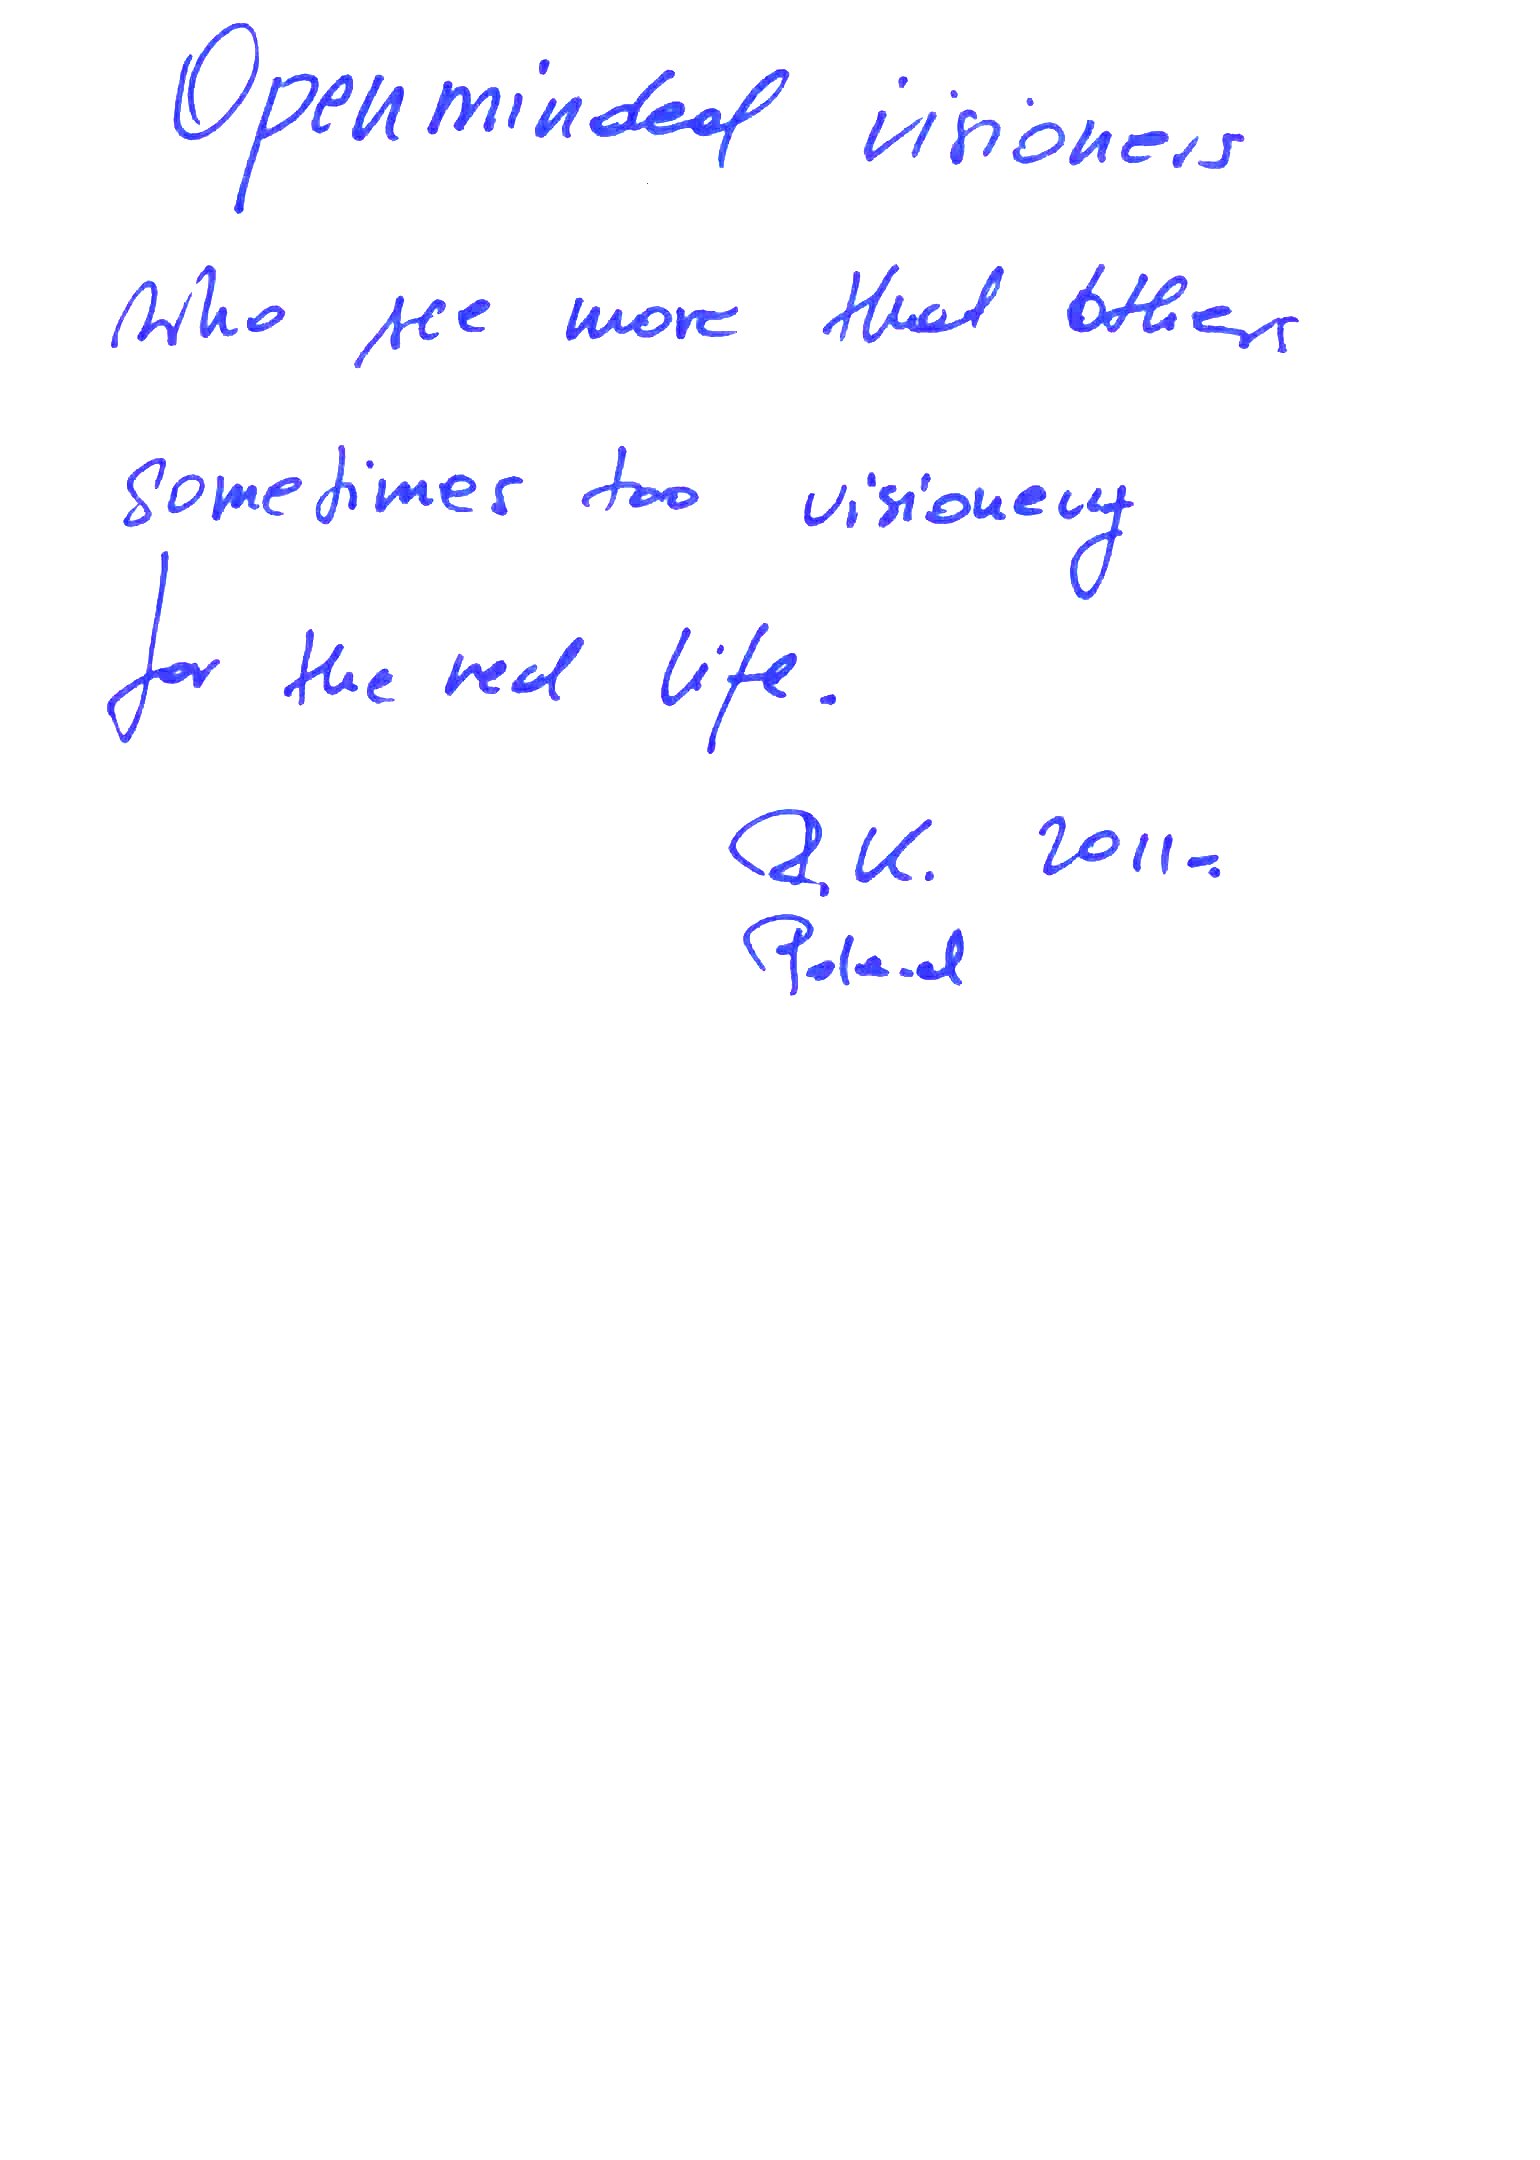 Openminded visioners
who see more that others
sometimes too visionery
for the real life.
R.K. 2011-.
Poland